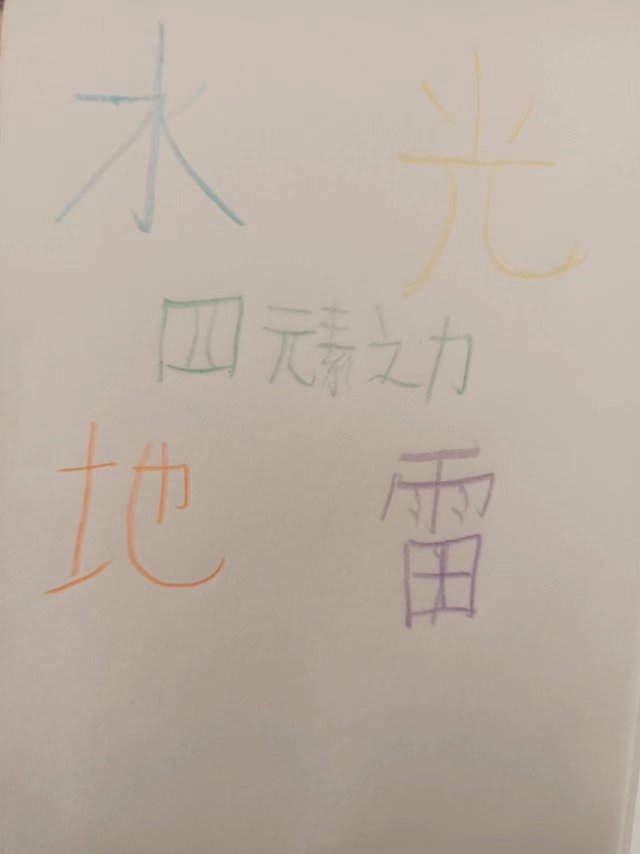 水 光
四元素之力
地 雷